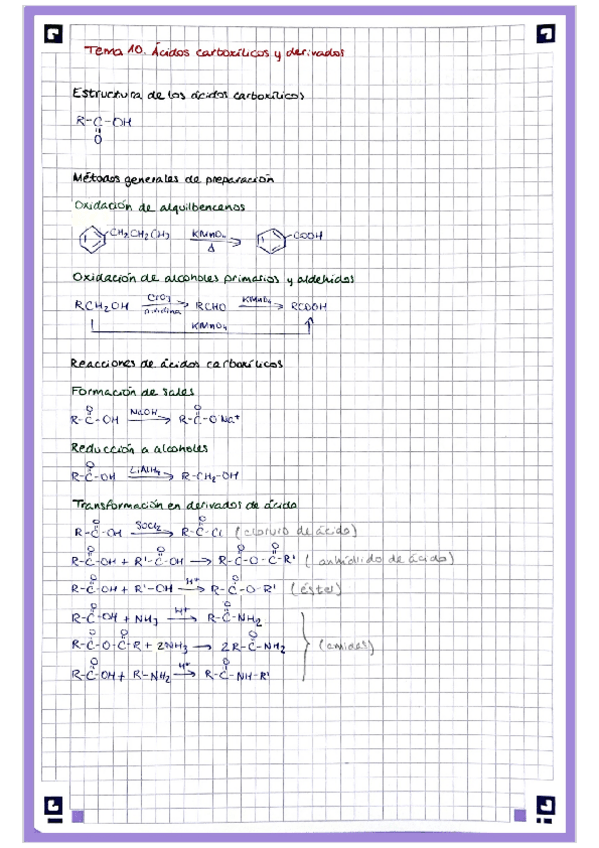 Tema 10. Ácidos carboxílicos y derivados
Estructura de los ácidos carboxílicos
R-C-OH
O
Métodos generales de preparación
Oxidación de alquilbencenos
CH2CH2CH3 KMnO4 Δ COOH
Oxidación de alcoholes primarios y aldehídos
RCH2OH CrO3 piridina RCHO KMnO4 RCOOH
KMnO4
Reacciones de ácidos carboxílicos
Formación de sales
O O
R-C-OH NaOH R-C-O Na+
Reducción a alcoholes
O
R-C-OH LiAlH4 R-CH2-OH
Transformación en derivados de ácido
O O
R-C-OH SOCl2 R-C-Cl (cloruro de ácido)
O O O O
R-C-OH + R'-C-OH → R-C-O-C-R' (anhídrido de ácido)
O O
R-C-OH + R'-OH H+ → R-C-O-R' (éster)
O O
R-C-OH + NH3 H+ → R-C-NH2
O O O
R-C-O-C-R + 2NH3 → 2R-C-NH2 (amidas)
O O
R-C-OH + R'-NH2 H+ → R-C-NH-R'